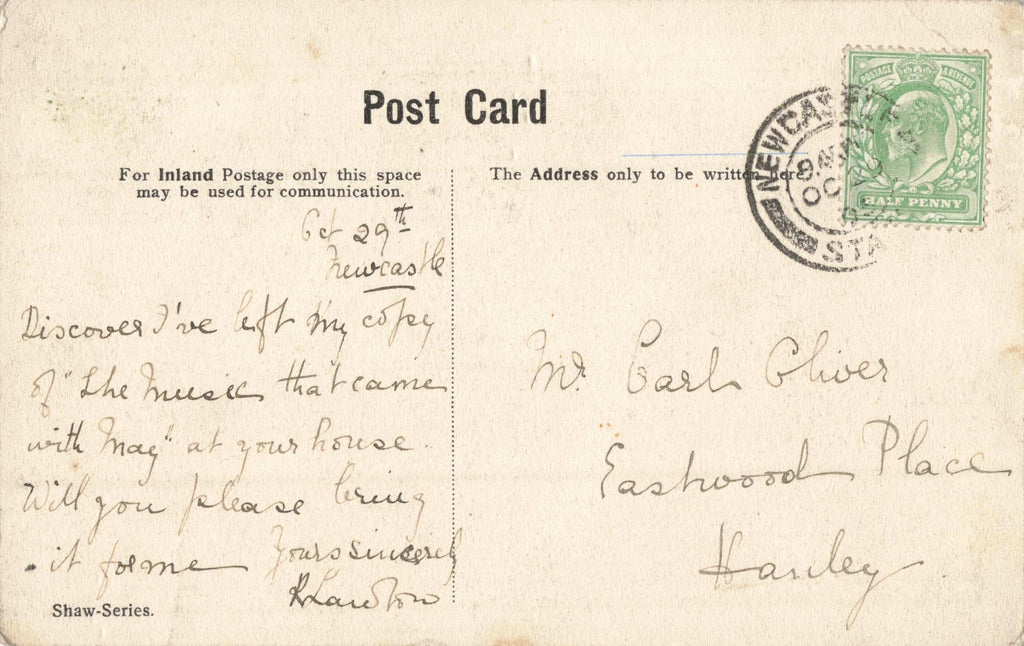 Post Card
For Inland Postage only this space
may be used for communication.
The Address only to be written here
POSTAGE & REVENUE
HALF PENNY
NEWCAST
OC
STA
Oct 29th
Newcastle
Discover I've left my copy
of "The Music that came
with May" at your house.
Will you please bring
it for me Yours sincerely
R Lawton
Mr. Carl Oliver
Eastwood Place
Hanley
Shaw-Series.